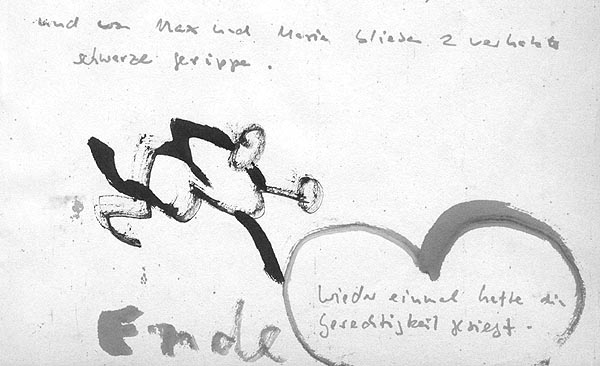 und von Max und Maria blieben 2 verkohlte
schwarze gerippe.
Wieder einmal hatte die
Gerechtigkeit gesiegt.
Ende